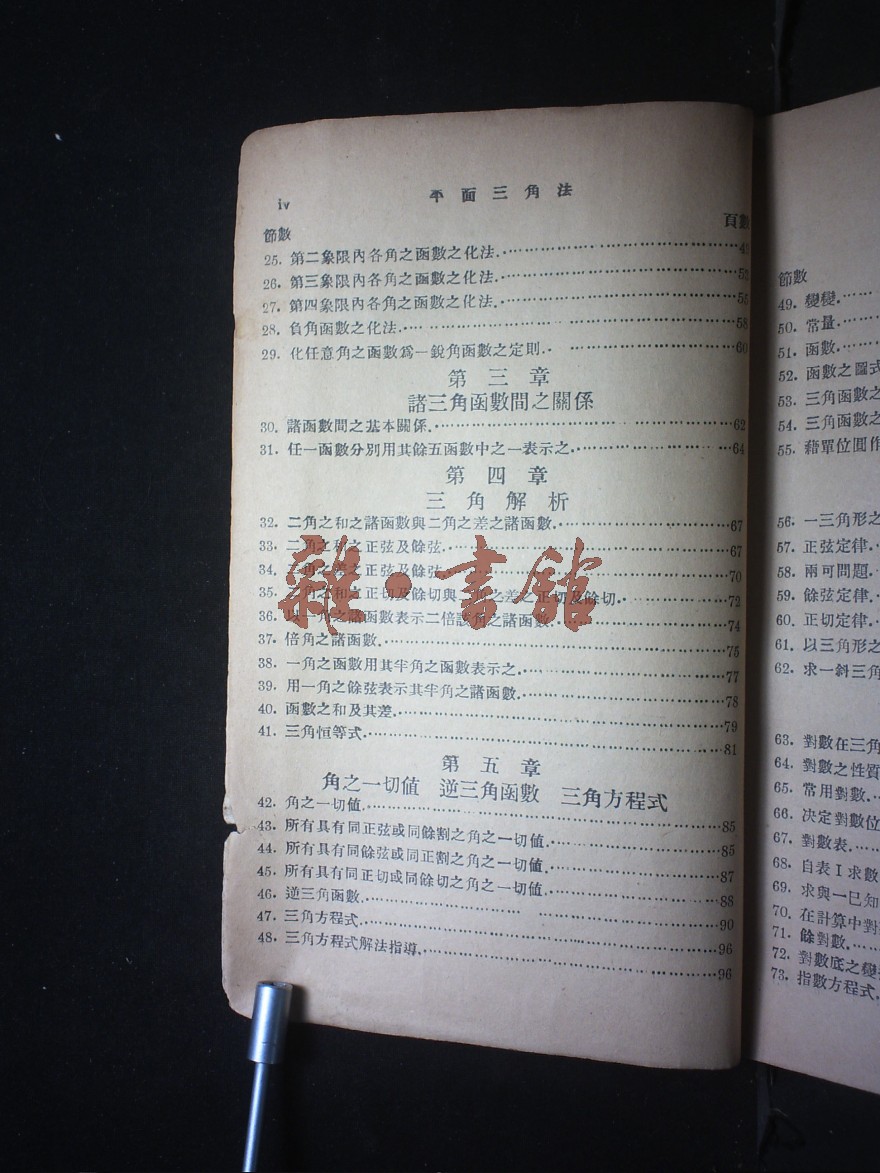 iv
平面三角法
節數
頁數
25. 第二象限內各角之函數之化法
26. 第三象限內各角之函數之化法
27. 第四象限內各角之函數之化法 55
28. 負角函數之化法 58
29. 化任意角之函數爲一銳角函數之定則 60
第三章
諸三角函數間之關係
30. 諸函數間之基本關係 62
31. 任一函數分別用其餘五函數中之一表示之 64
第四章
三角解析
32. 二角之和之諸函數與二角之差之諸函數 67
33. 二角之和之正弦及餘弦 67
34. 二角之差之正弦及餘弦 70
35. 二角之和之正切及餘切與二角之差之正切及餘切 72
36. 以一角之諸函數表示二倍該角之諸函數 74
37. 倍角之諸函數 75
38. 一角之函數用其半角之函數表示之 77
39. 用一角之餘弦表示其半角之諸函數 78
40. 函數之和及其差 79
41. 三角恒等式 81
第五章
角之一切値 逆三角函數 三角方程式
42. 角之一切値 85
43. 所有具有同正弦或同餘割之角之一切値 85
44. 所有具有同餘弦或同正割之角之一切値 87
45. 所有具有同正切或同餘切之角之一切値 88
46. 逆三角函數 90
47. 三角方程式 96
48. 三角方程式解法指導 96
雜·書館
節數
49. 變變
50. 常量
51. 函數
52. 函數之圖式
53. 三角函數之
54. 三角函數之
55. 藉單位圓作
56. 一三角形之
57. 正弦定律
58. 兩可問題
59. 餘弦定律
60. 正切定律
61. 以三角形之
62. 求一斜三角
63. 對數在三角
64. 對數之性質
65. 常用對數
66. 决定對數位
67. 對數表
68. 自表I求數
69. 求與一已知
70. 在計算中對
71. 餘對數
72. 對數底之變
73. 指數方程式